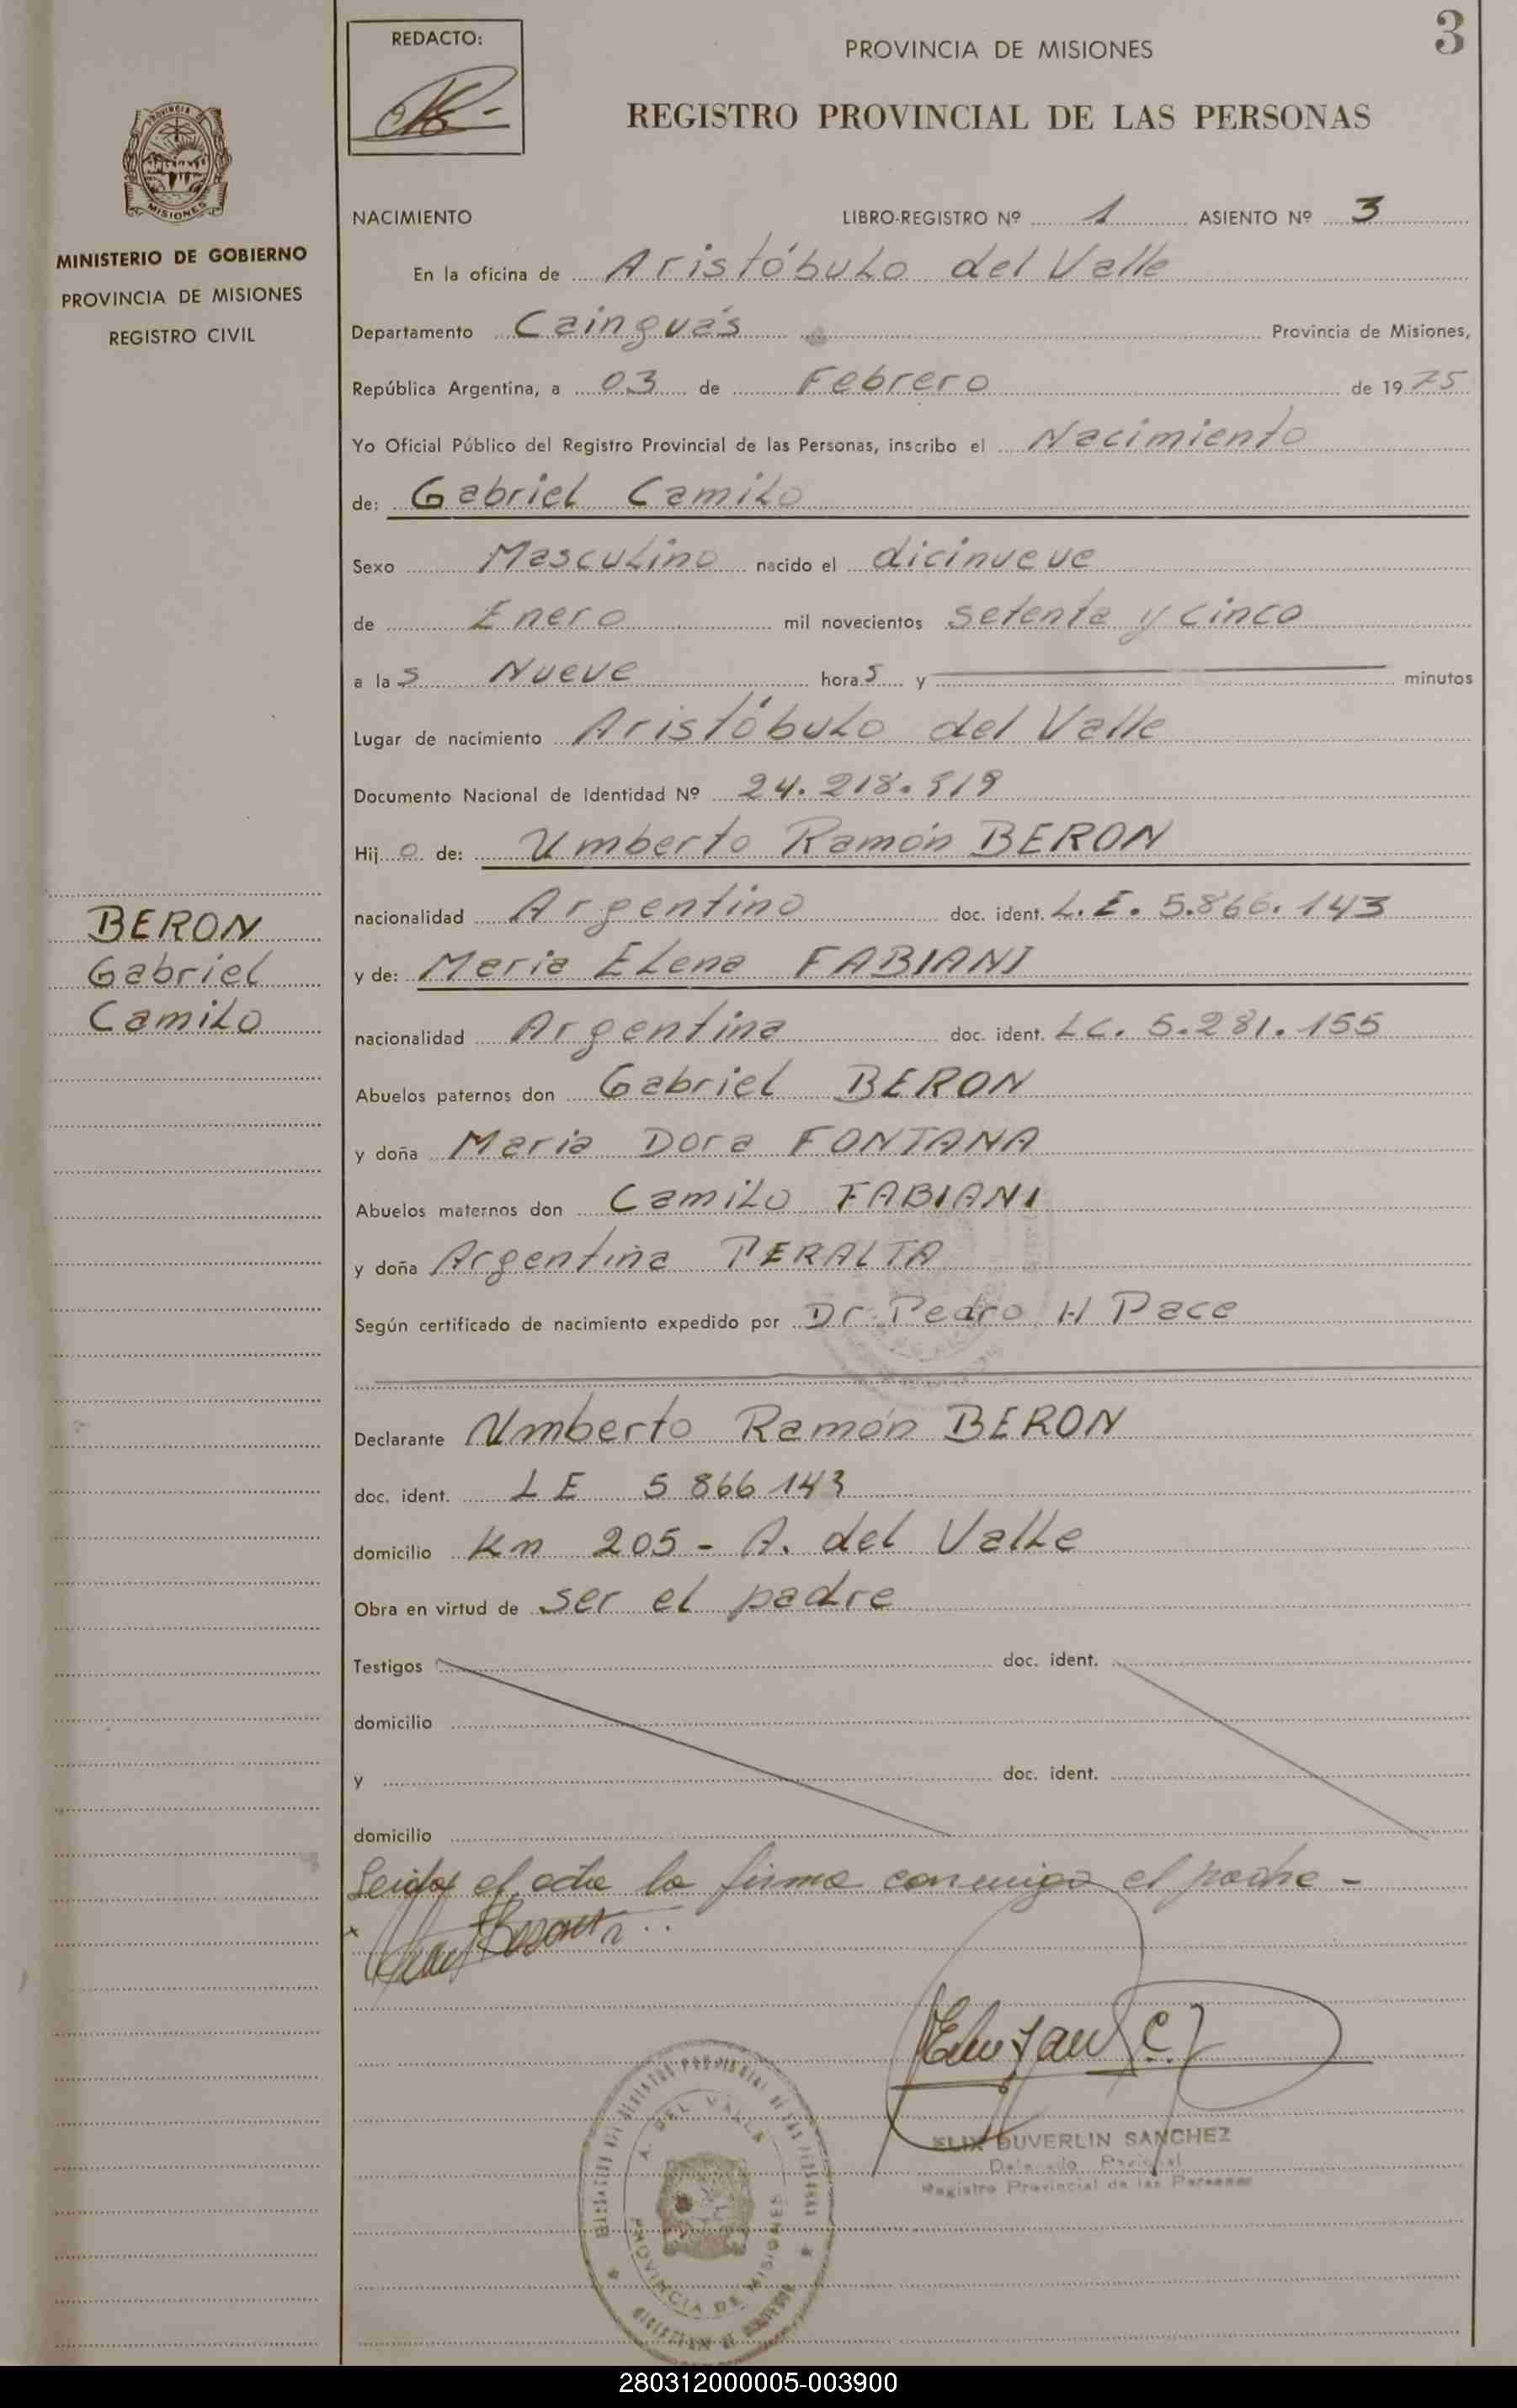 3
REDACTO:
PROVINCIA DE MISIONES
REGISTRO PROVINCIAL DE LAS PERSONAS
MISIONES
MINISTERIO DE GOBIERNO
PROVINCIA DE MISIONES
REGISTRO CIVIL
NACIMIENTO LIBRO-REGISTRO Nº 1 ASIENTO Nº 3
En la oficina de Aristóbulo del Valle
Departamento Cainguás Provincia de Misiones,
República Argentina, a 03 de Febrero de 1975
Yo Oficial Público del Registro Provincial de las Personas, inscribo el Nacimiento
de: Gabriel Camilo
Sexo Masculino nacido el dicinueve
de Enero mil novecientos setenta y cinco
a las Nueve horas y minutos
Lugar de nacimiento Aristóbulo del Valle
Documento Nacional de Identidad Nº 24.218.919
Hijo de: Umberto Ramón BERON
nacionalidad Argentino doc. ident. L.E. 5.866.143
y de: Maria Elena FABIANI
nacionalidad Argentina doc. ident. LC. 5.281.155
BERON
Gabriel
Camilo
Abuelos paternos don Gabriel BERON
y doña Maria Dora FONTANA
Abuelos maternos don Camilo FABIANI
y doña Argentina PERALTA
Según certificado de nacimiento expedido por Dr. Pedro H Pace
Declarante Umberto Ramón BERON
doc. ident. LE 5866143
domicilio Km 205 - A. del Valle
Obra en virtud de ser el padre
Testigos doc. ident.
domicilio
y doc. ident.
domicilio
Leida el acta la firma conmigo el padre -
DUVERLIN SANCHEZ
Registro Provincial de las Personas
A. DEL VALLE
PROVINCIA DE MISIONES
280312000005-003900